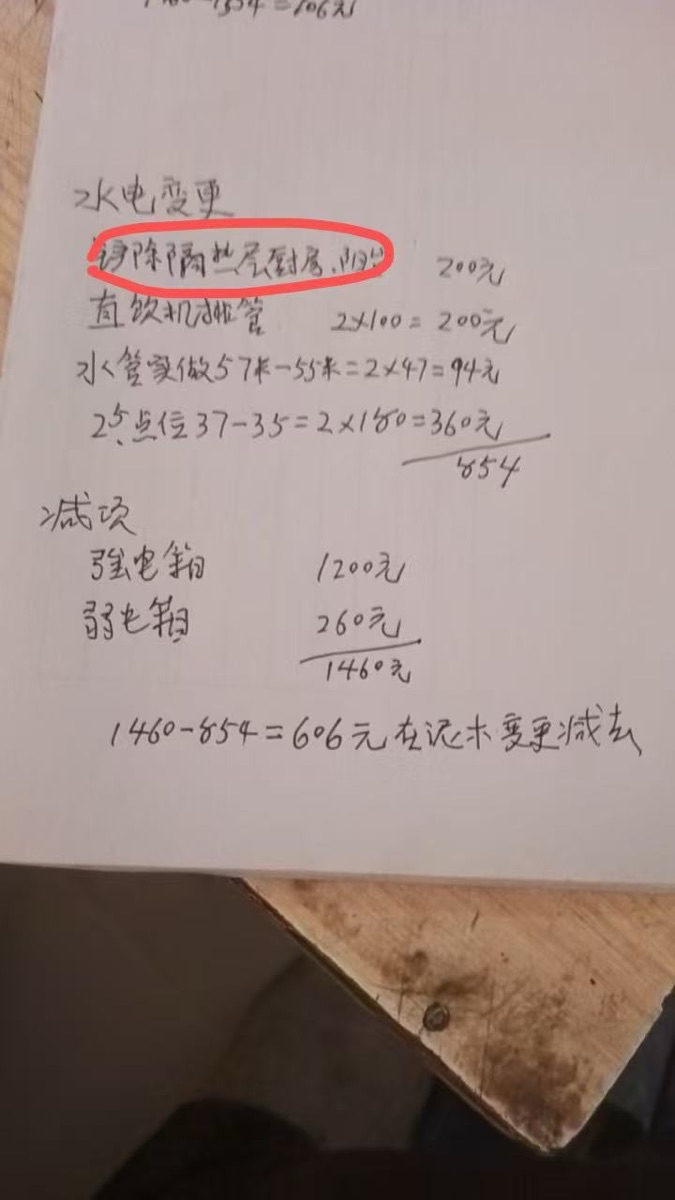 水电变更
铲除隔热层厨房、阳台 200元
直饮机排管 2×100=200元
水管实做57米-55米=2×47=94元
25.点位37-35=2×180=360元
854
减项
强电箱 1200元
弱电箱 260元
1460元
1460-854=606元在泥木变更减去